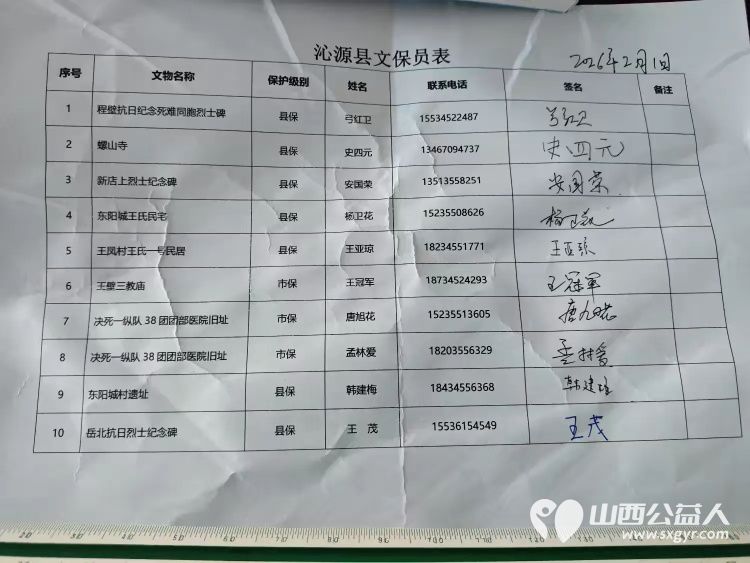 沁源县文保员表
2026年2月1日
序号 文物名称 保护级别 姓名 联系电话 签名 备注
1 程壁抗日纪念死难同胞烈士碑 县保 弓红卫 15534522487 弓红卫
2 螺山寺 县保 史四元 13467094737 史四元
3 新店上烈士纪念碑 县保 安国荣 13513558251 安国荣
4 东阳城王氏民宅 县保 杨卫花 15235508626 杨卫花
5 王凤村王氏一号民居 县保 王亚琼 18234551771 王亚琼
6 王壁三教庙 市保 王冠军 18734524293 王冠军
7 决死一纵队38团团部医院旧址 市保 唐旭花 15235513605 唐旭花
8 决死一纵队38团团部医院旧址 市保 孟林爱 18203556329 孟林爱
9 东阳城村遗址 县保 韩建梅 18434556368 韩建梅
10 岳北抗日烈士纪念碑 县保 王 茂 15536154549 王茂
山西公益人
www.sxgyr.com